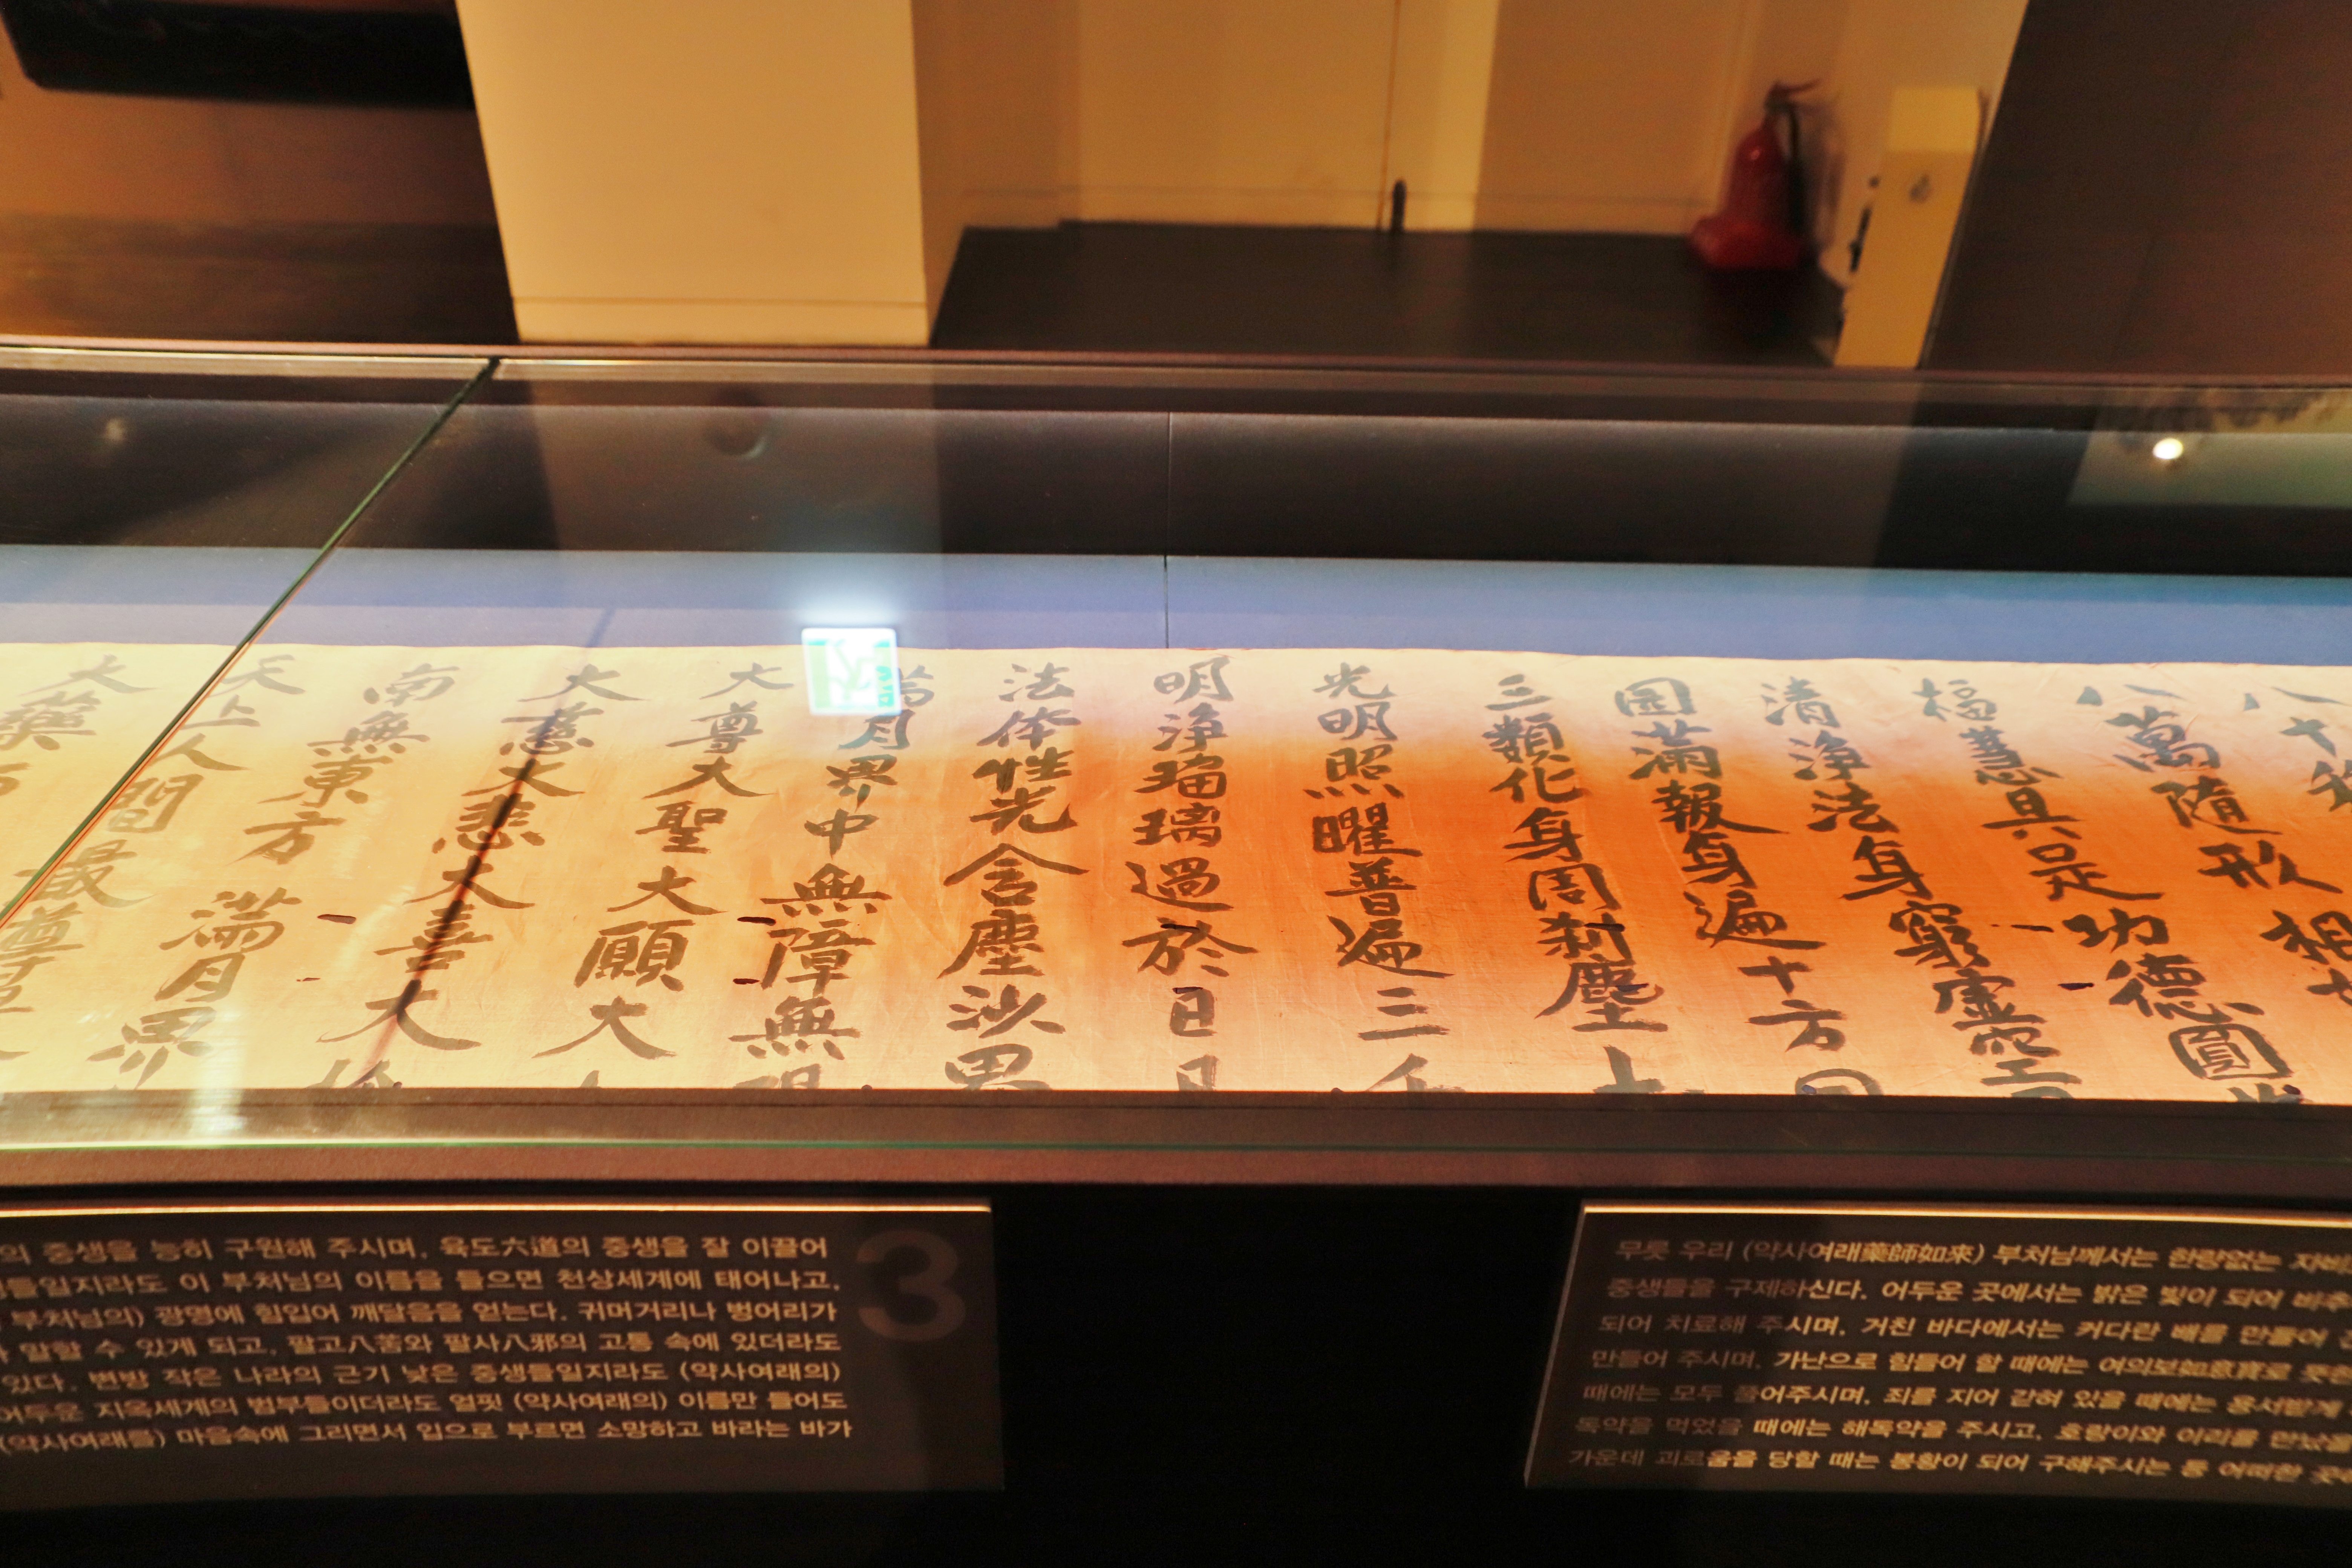 八十
八萬隨形相
福慧具足功德圓
清淨法身窮虛空
圆滿報身遍十方
三類化身周刹塵
光明照曜普遍三千
明淨瑠璃過於日月
法体性光含塵沙界
滿月界中無障無
大尊大聖大願大
大慈大悲大喜大
南無東方滿月界
天上人間最尊
大藥
의 중생을 능히 구원해 주시며, 육도六道의 중생을 잘 이끌어
들일지라도 이 부처님의 이름을 들으면 천상세계에 태어나고,
부처님의) 광명에 힘입어 깨달음을 얻는다. 귀머거리나 벙어리가
말할 수 있게 되고, 팔고八苦와 팔사八邪의 고통 속에 있더라도
있다. 변방 작은 나라의 근기 낮은 중생들일지라도 (약사여래의)
어두운 지옥세계의 범부들이더라도 얼핏 (약사여래의) 이름만 들어도
(약사여래를) 마음속에 그리면서 입으로 부르면 소망하고 바라는 바가
3
무릇 우리 (약사여래藥師如來) 부처님께서는 한량없는
중생들을 구제하신다. 어두운 곳에서는 밝은 빛이 되어
되어 치료해 주시며, 거친 바다에서는 커다란 배를 만들어
만들어 주시며, 가난으로 힘들어 할 때에는 여의보如意寶로
때에는 모두 풀어주시며, 죄를 지어 갇혀 있을 때에는 용서받게
독약을 먹었을 때에는 해독약을 주시고, 호랑이와 이리를 만났을
가운데 괴로움을 당할 때는 봉황이 되어 구해주시는 등 어떠한